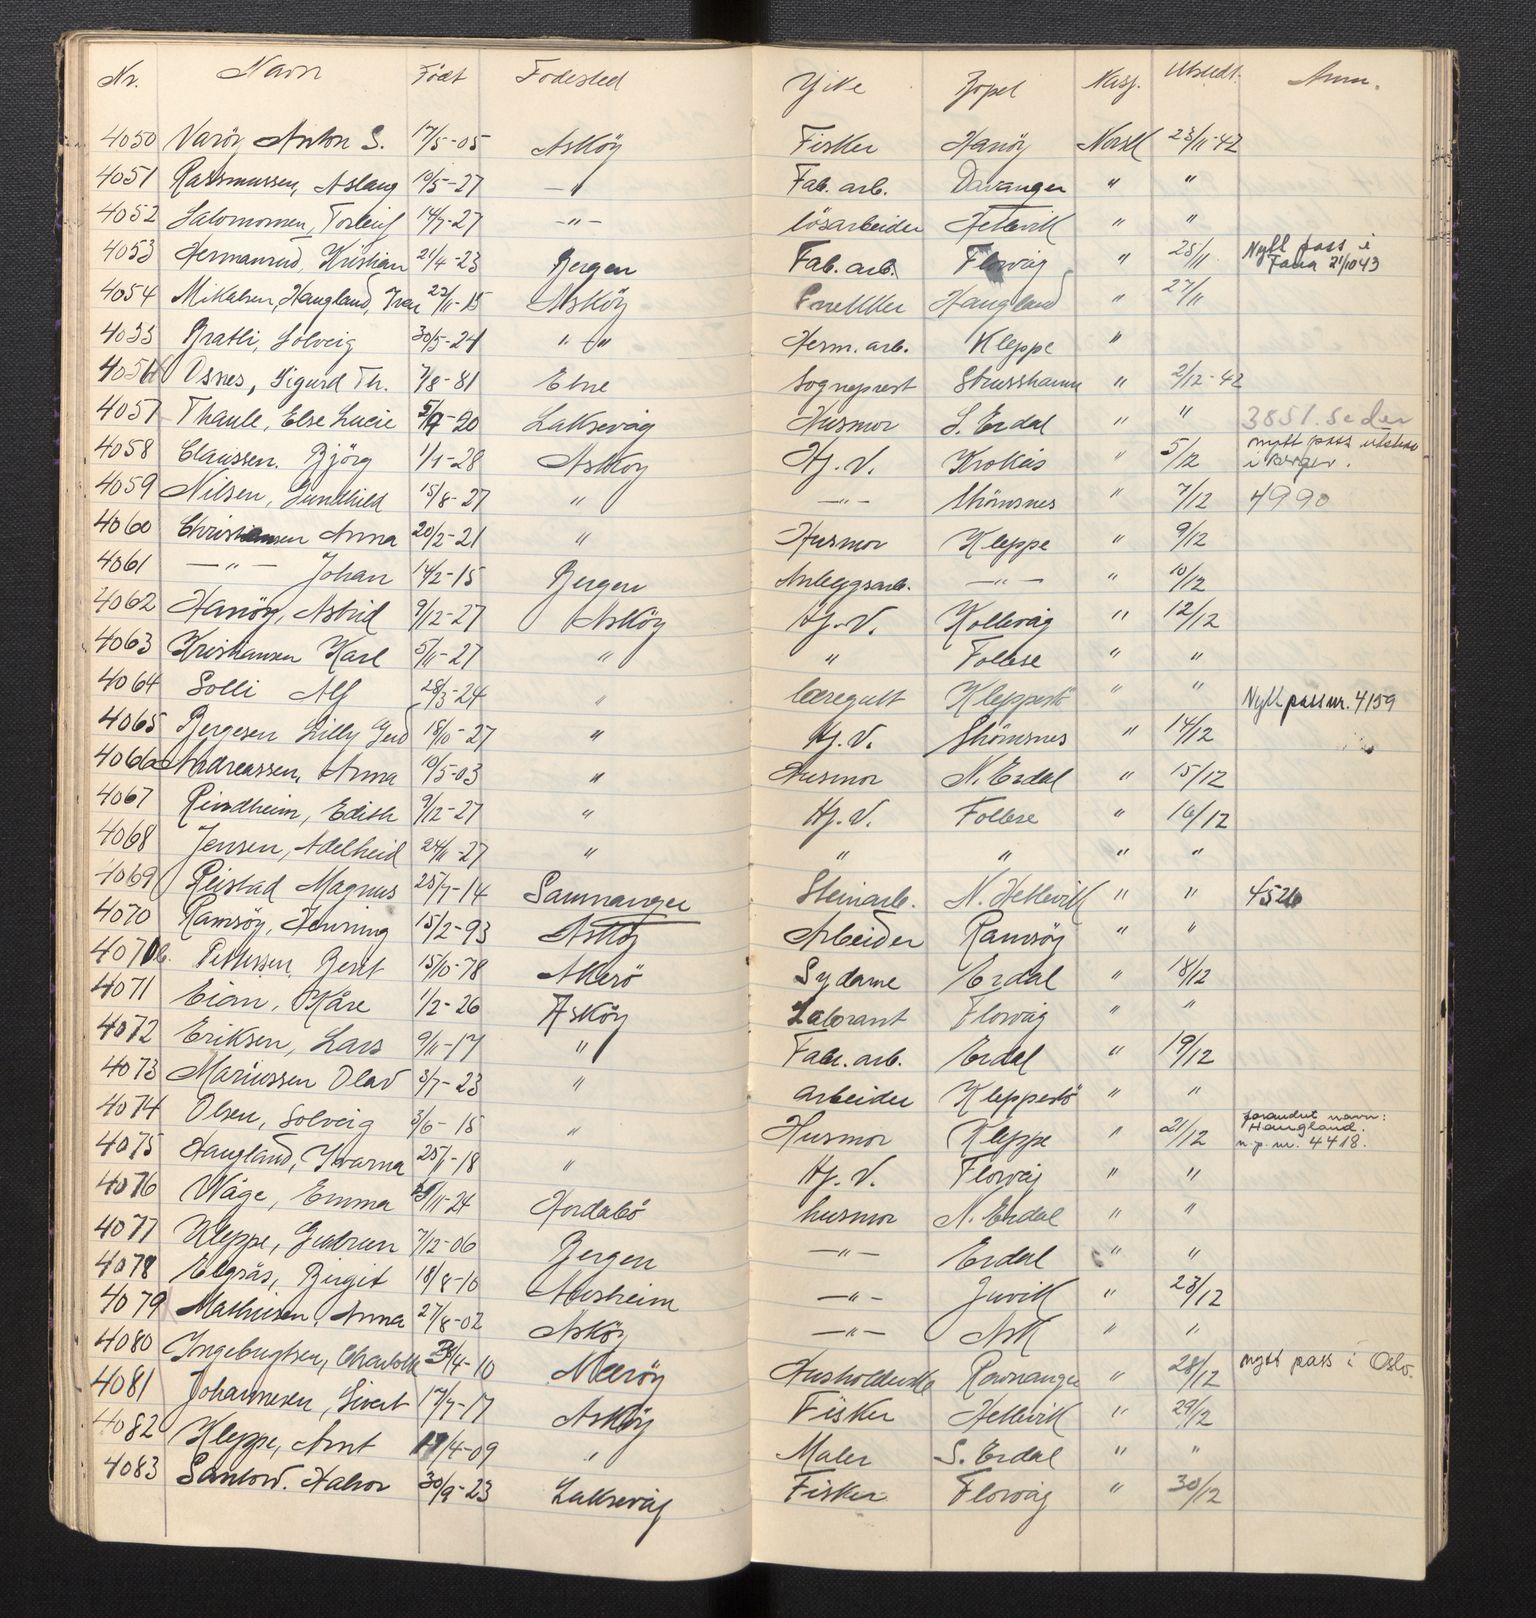 Nr. Navn Født Fødested Yrke Bopel Nasj. Utstedt. Anm.
4050 Varöy Anton S. 17/5-05 Asköy Fisker Hanöy Norsk 23/11-42
4051 Rasmussen, Aslaug 10/5-27 —"— Fab. arb. Davanger " "
4052 Salomonsen, Torleif 14/7-27 —"— lösarbeider Hetlevik " "
4053 Hermanrud, Kristian 21/4-23 Bergen Fab. arb. Florvåg " 25/11 Nytt pass i Fana 21/10 43
4054 Mikalsen, Haugland, Ivar 22/11-15 Asköy Snekker Haugland " 27/11
4055 Bratli, Solveig 30/5-24 " " Herm. arb. Kleppe "
4056 Osnes, Sigurd Th. 7/8-81 Etne Sogneprest Strusshamn " 2/12-42
4057 Thaule, Else Lucie 5/9-20 Laksevåg Husmor S. Erdal " " 3851. Seder
4058 Claussen. Björg 1/1-28 Asköy Hj. V. Krokås " 5/12 nytt pass utsted i Bergen.
4059 Nilsen, Gundhild 15/8-27 " —"— Strömsnes " 7/12 4990
4060 Christiansen Anna 20/2-21 " Husmor Kleppe " 9/12
4061 —"— Johan 14/2-15 Bergen Anleggsarb. —"— " 10/12
4062 Hanöy, Astrid 9/12-27 Asköy Hj. V. Kollevåg " 12/12
4063 Kristiansen Karl 5/11-27 " " Follese " "
4064 Solli Alf 28/3-24 " læregutt Kleppestö " " Nytt passnr. 4159
4065 Bergesen Lilly Gerd 18/10-27 " Hj. V. Strömsnes " 14/12
4066 Andreassen, Anna 10/5-03 " Husmor N. Erdal " 15/12
4067 Rindheim, Edith 9/12-27 " Hj. V. Follese " 16/12
4068 Jensen, Adelheid 24/11-27 " " " " "
4069 Reistad Magnus 25/7-14 Samnanger Steinarb. N. Hetlevik " " 4526
4070 Ramsöy, Henning 15/2-93 Asköy Arbeider Ramsöy " "
4070b. Pettersen, Berit 15/10-78 Akerö Sydame Erdal " 18/12
4071 Eian, Kåre 1/2-26 Asköy Laborant Florvåg " "
4072 Eriksen, Lars 9/11-17 " Fabr. arb. Erdal " 19/12
4073 Mariussen Olav 3/7-23 " arbeider Kleppestö " "
4074 Olsen, Solveig 3/6-15 " Husmor Kleppe " 21/12 forandret navn: Haugland. n.p. nr. 4418.
4075 Haugland, Ivarna 25/1-18 " Hj. V. Florvåg " "
4076 Wåge, Emma /11-24 Hordabö husmor N. Erdal " "
4077 Kleppe, Gudrun 7/12-06 Bergen —"— Erdal " "
4078 Elgsås, Birgit 18/8-10 Ausheim —"— Juvik " 23/12
4079 Mathiesen, Anna 27/8-02 Asköy —"— Ask " "
4080 Ingebrigtsen, Charlotte /4-10 Meröy Husholderske Ravnanger " 28/12 nytt pass i Oslo.
4081 Johannesen, Sivert 17/7-17 Asköy Fisker Hetlevik " 29/12
4082 Kleppe, Arnt 19/4-09 " Maler S. Erdal " "
4083 Halvor 30/9-23 Laksevåg Fisker Florvåg " 30/12